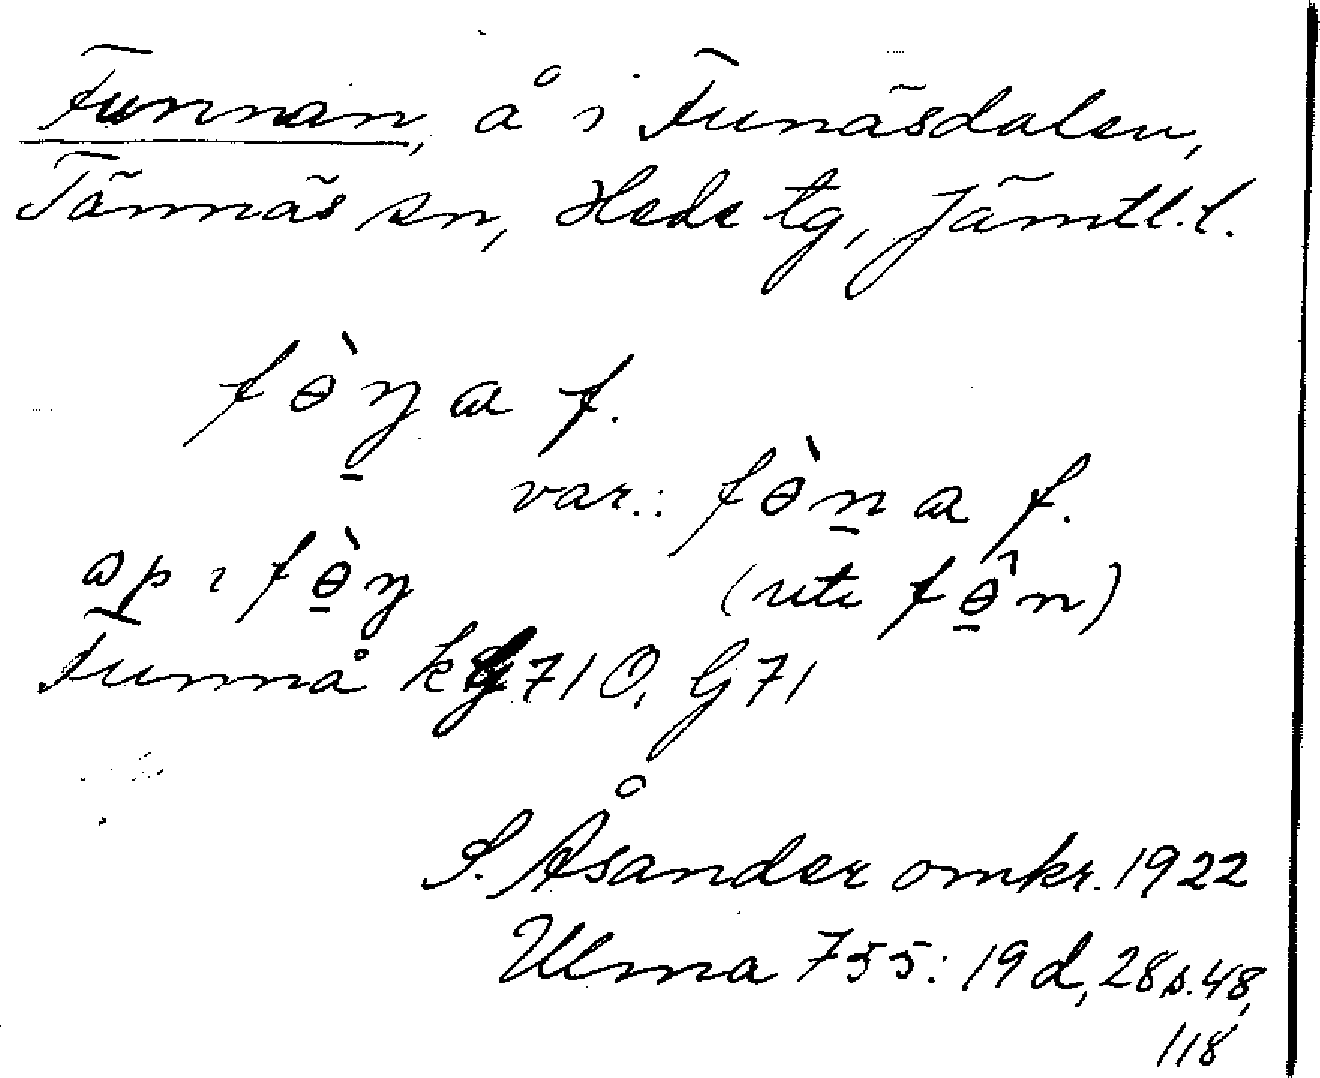 Funnan, å i Funäsdalen,
Tännäs sn, Hede tg, Jämtl. l.
fɵ̀ŋ̠a f.
var.: fɵ̀n̠a f.
fɵ̠̀ŋ
(ute fɵ̠̂n)
Funnå kG710, G71
S. Åsander omkr. 1922
Ulma 755: 19d, 28 s. 48,
118